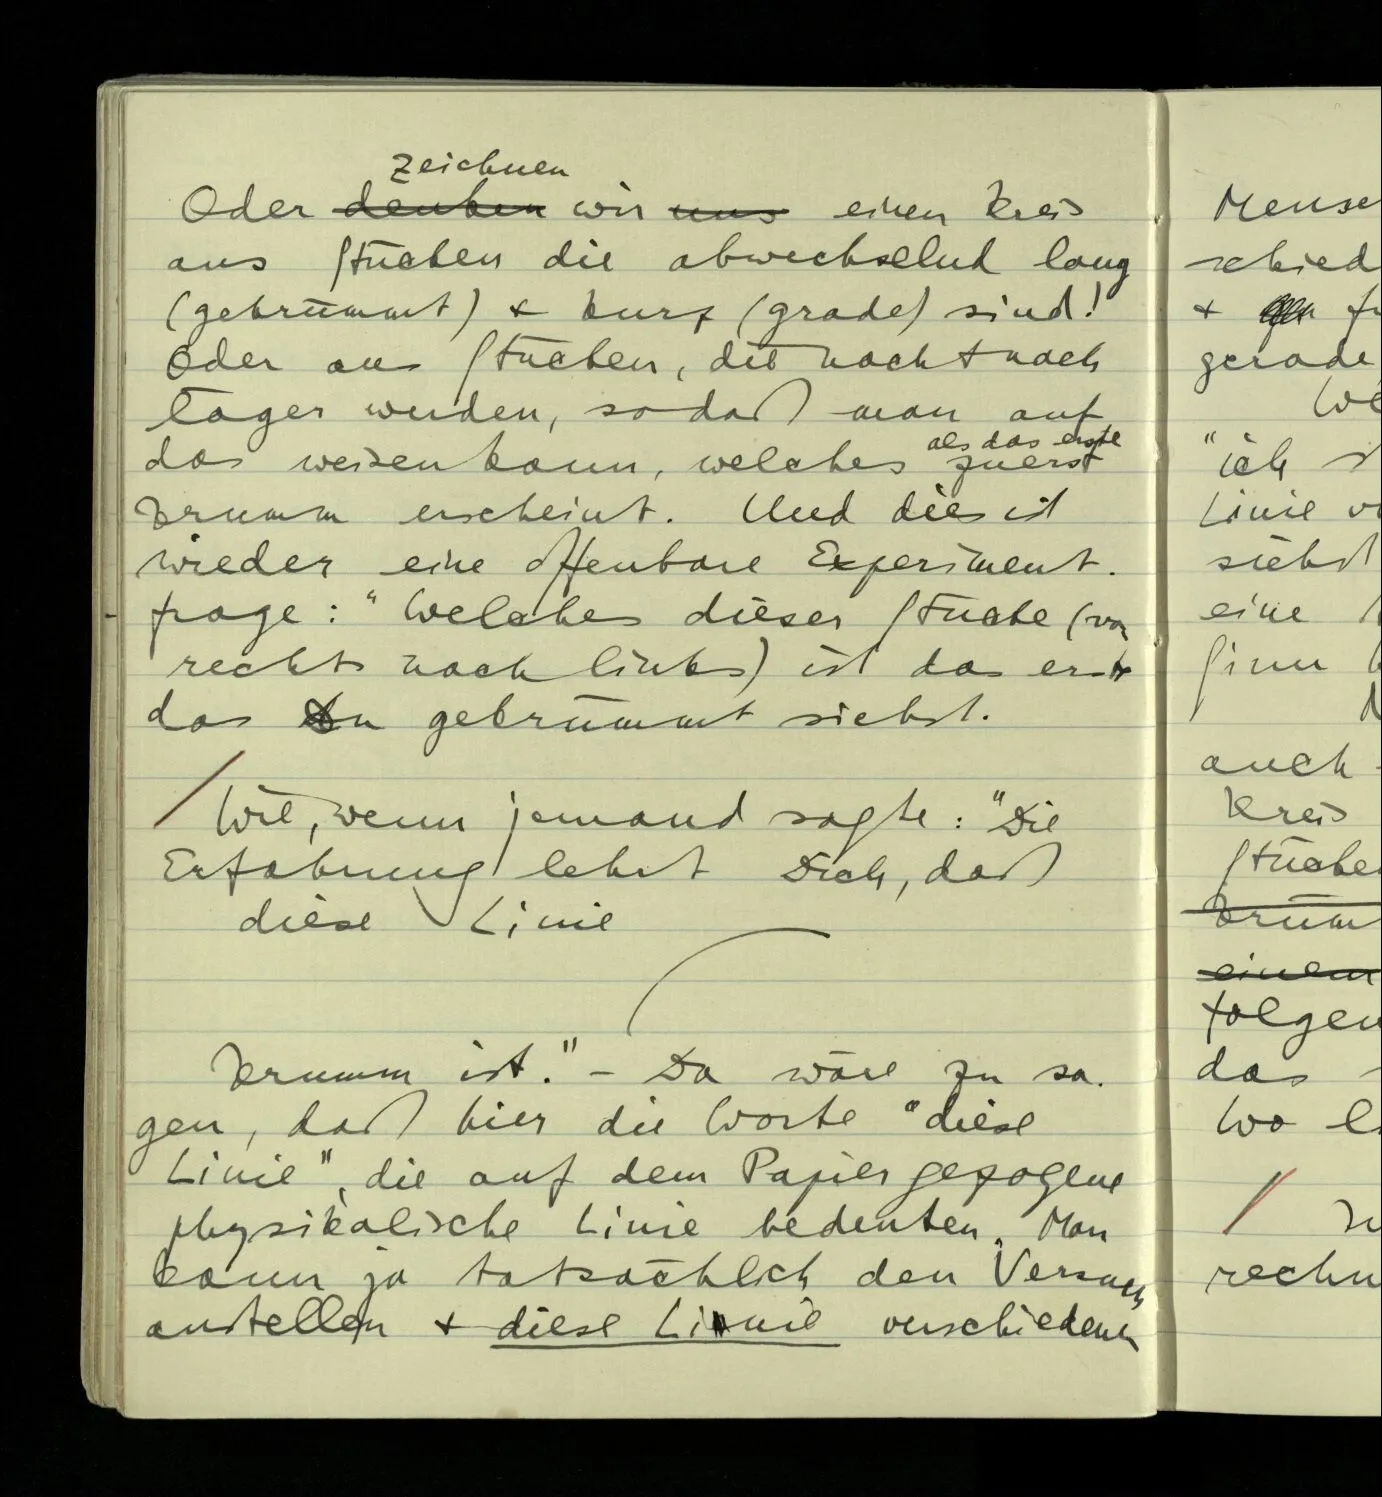 zeichnen
Oder denken wir uns einen Kreis
aus Stücken die abwechselnd lang
(gekrümmt) & kurz (grade) sind!
Oder aus Stücken, die nach & nach
länger werden, sodaß man auf
als das erste
das weisen kann, welches zuerst
krumm erscheint. Und dies ist
wieder eine offenbare Experiment-
frage: "Welches dieser Stücke (von
rechts nach links) ist das erste
das Du gekrümmt siehst.
Wie, wenn jemand sagte: "Die
Erfahrung lehrt Dich, daß
diese Linie
krumm ist." – Da wäre zu sa-
gen, daß hier die Worte "diese
Linie", die auf dem Papier gezogene
physikalische Linie bedeuten. Man
kann ja tatsächlich den Versuch
anstellen & diese Linie verschiedenen
Mensc
schied
&
gerade
We
"ich
Linie vo
siehst
eine
Sinn
auch
Kreis
Stücken
krümm
einem
folgen
das
Wo
rechn